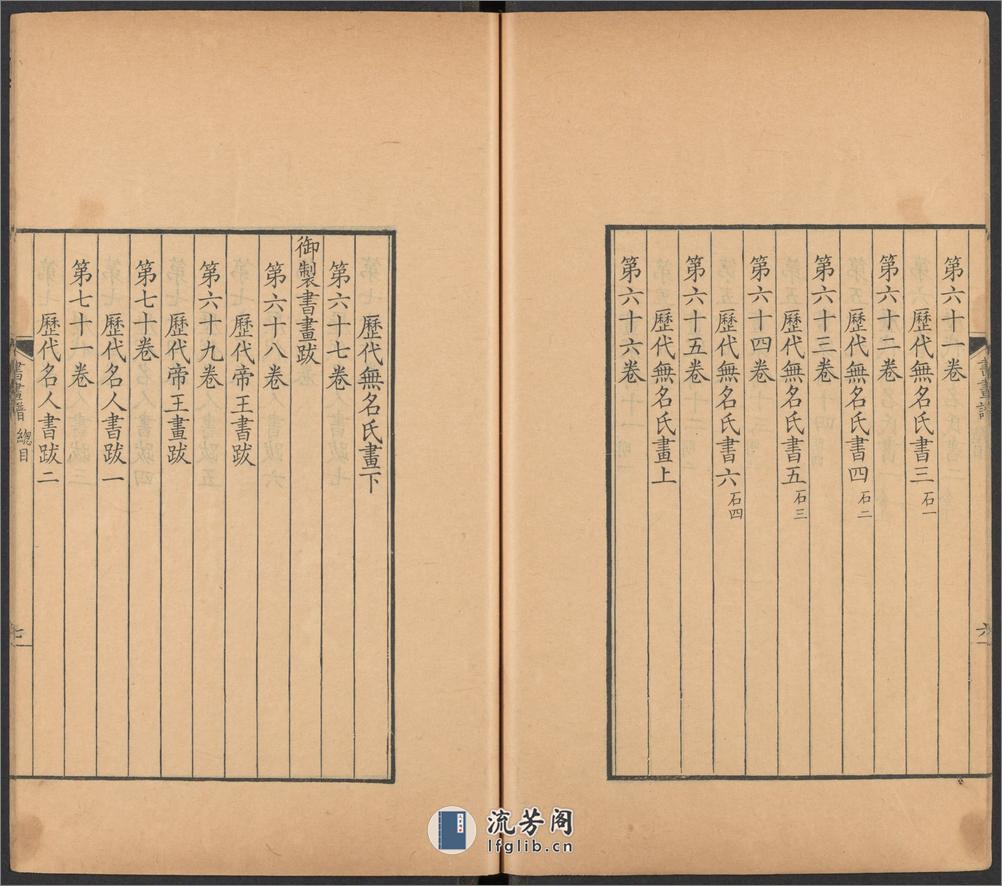 第六十一卷
歷代無名氏書三 石一
第六十二卷
歷代無名氏書四 石二
第六十三卷
歷代無名氏書五 石三
第六十四卷
歷代無名氏書六 石四
第六十五卷
歷代無名氏畫上
第六十六卷
書畫譜
六
歷代無名氏畫下
第六十七卷
御製書畫跋
第六十八卷
歷代帝王書跋
第六十九卷
歷代帝王畫跋
第七十卷
歷代名人書跋一
第七十一卷
歷代名人書跋二
書畫譜 總目
七
流芳阁
lfglib.cn